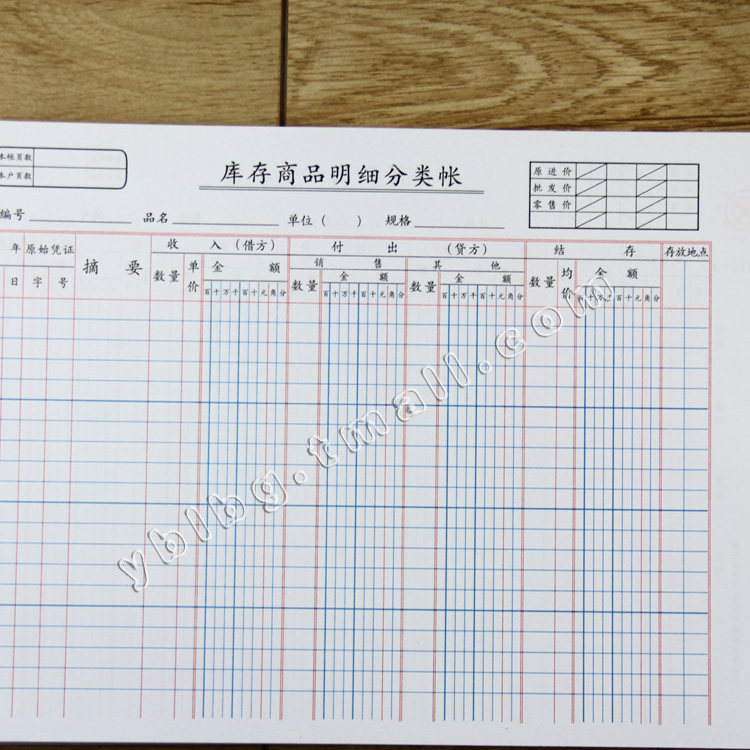 本帐页数
本户页数
库存商品明细分类帐
原进价
批发价
零售价
编号 品名 单位（ ） 规格
年 原始凭证 摘 要 收 入（借方） 付 出 （贷方） 结 存 存放地点
日 字 号 数量 单价 金 额 销 售 其 他 数量 均价 金 额
数量 金 额 数量 金 额
百十万千百十元角分 百十万千百十元角分 百十万千百十元角分 百十万千百十元角分
yblbg.tmall.com